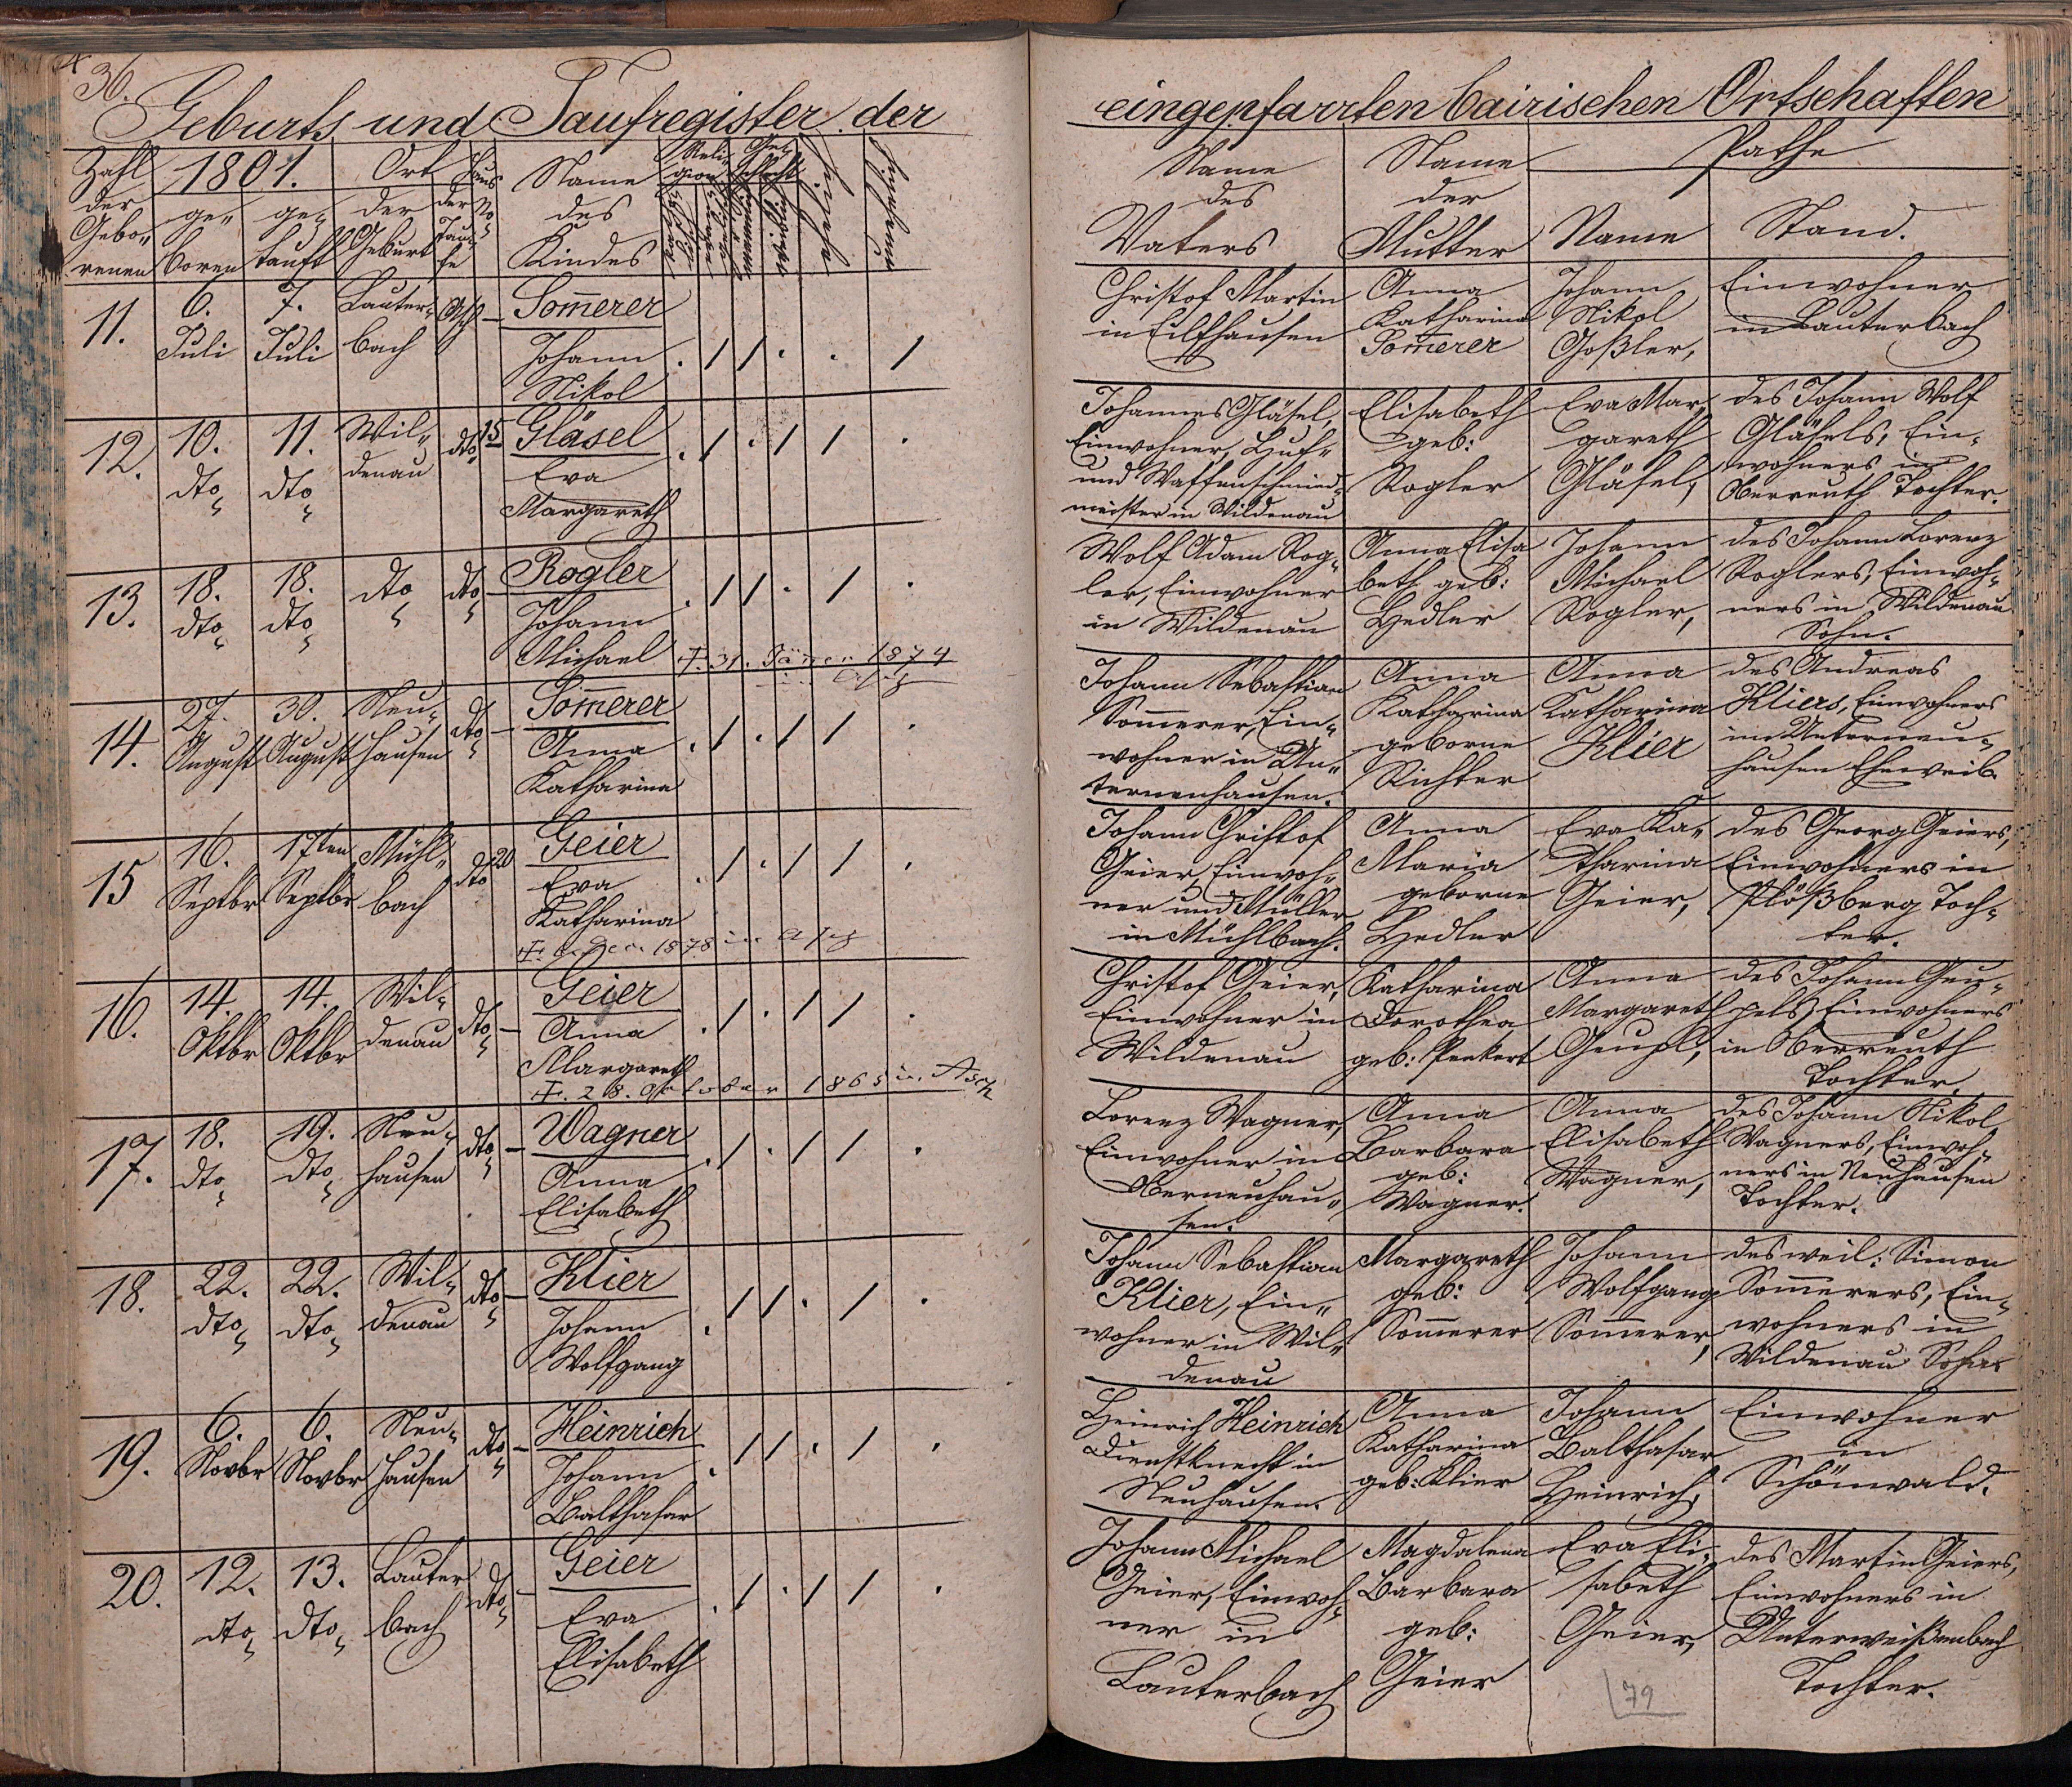 36.
Geburts und Taufregister der
eingepfarrten bairischen Ortschaften
Zahl
der
Gebo„
renen
1801.
ge„
boren
ge„
tauft
Ort
der
Geburt
der
Tau„
fe
Haus
No
Name
des
Kindes
Reli„
gion
Ge„
schlecht
Name
des
Vaters
Name
der
Mutter
Pathe
Name
Stand.
11.
6.
Juli
7.
Juli
Lauter„
bach
Asch
–
Som̅erer
Johann
Nikol
. / / . . /
Christof Martin
in Eilfhausen
Anna
Katharina
Som̅erer
Johann
Nikol
Goßler,
Einwohner
in Lauterbach
12.
10.
dto
11.
dto
Wil„
denau
dto
15
Gläsel
Eva
Margareth
. / . / / .
Johannes Gläsel,
Einwohner, Huf„
und Waffenschmied„
meister in Wildenau
Elisabeth
geb:
Rogler
Eva Mar„
gareth
Gläsel,
des Johann Wolf
Gläsels, Ein„
wohners in
Oberreuth Tochter.
13.
18.
dto
18.
dto
dto
dto
–
Rogler
Johann
Michael
. / / . / .
✝. 31. Jäner 1874
Asch
Wolf Adam Rog„
ler, Einwohner
in Wildenau
Anna Elisa
beth geb:
Hedler
Johann
Michael
Rogler,
des Johann Lorenz
Roglers, Einwoh„
ners in Wildenau
Sohn.
14.
27.
August
30.
August
Neu„
hausen
dto
–
Som̅erer
Anna
Katharina
. / . / / .
Johann Sebastian
Som̅erer, Ein„
wohner in Un„
terneuhausen.
Anna
Katharina
geborne
Richter
Anna
Katharina
Klier
des Andreas
Kliers, Einwohners
in Unterneu„
hausen Eheweib.
15
16.
Septbr
17ten
Septbr
Mühl„
bach
dto
20
Geier
Eva
Katharina
. / . / / .
1878 in Asch
Johann Christof
Geier, Einwoh„
ner und Müller
in Mühlbach.
Anna
Maria
geborne
Hedler
Eva Ka„
tharina
Geier,
des Georg Geiers,
Einwohners in
Plößberg Toch„
ter.
16.
14.
Oktbr
14.
Oktbr
Wil„
denau
dto
–
Geier
Anna
Margareth
. / . / / .
✝. 28. Oktober 1865 in Asch
Christof Geier,
Einwohner in
Wildenau
Katharina
Dorothea
geb: Penkert
Anna
Margareth
Geupl,
des Johann Geu„
pels, Einwohners
in Oberreuth
Tochter.
17.
18.
dto
19.
dto
Neu„
hausen
dto
–
Wagner
Anna
Elisabeth
. / . / / .
Lorenz Wagner,
Einwohner in
Oberneuhau„
sen.
Anna
Barbara
geb:
Wagner.
Anna
Elisabeth
Wagner,
des Johann Nikol
Wagners, Einwoh„
ners in Neuhausen
Tochter.
18.
22.
dto
22.
dto
Wil„
denau
dto
–
Klier
Johann
Wolfgang
. / / . / .
Johann Sebastian
Klier, Ein„
wohner in Wil„
denau
Margareth
geb:
Som̅erer
Johann
Wolfgang
Som̅erer,
des weil: Simon
Som̅erers, Ein„
wohners in
Wildenau Sohn
19.
6.
Novbr
6.
Novbr
Neu„
hausen
dto
–
Heinrich
Johann
Balthasar
. / / . / .
Heinrich Heinrich
Dienstknecht in
Neuhausen.
Anna
Katharina
geb: Klier
Johann
Balthasar
Heinrich,
Einwohner
in
Schönwald.
20.
12.
dto
13.
dto
Lauter
bach
dto
–
Geier
Eva
Elisabeth
. / . / / .
Johann Michael
Geier, Einwoh„
ner in
Lauterbach
Magdalena
Barbara
geb:
Geier
Eva Eli„
sabeth
Geier,
des Martin Geiers,
Einwohners in
Unterweißenbach
Tochter.
79